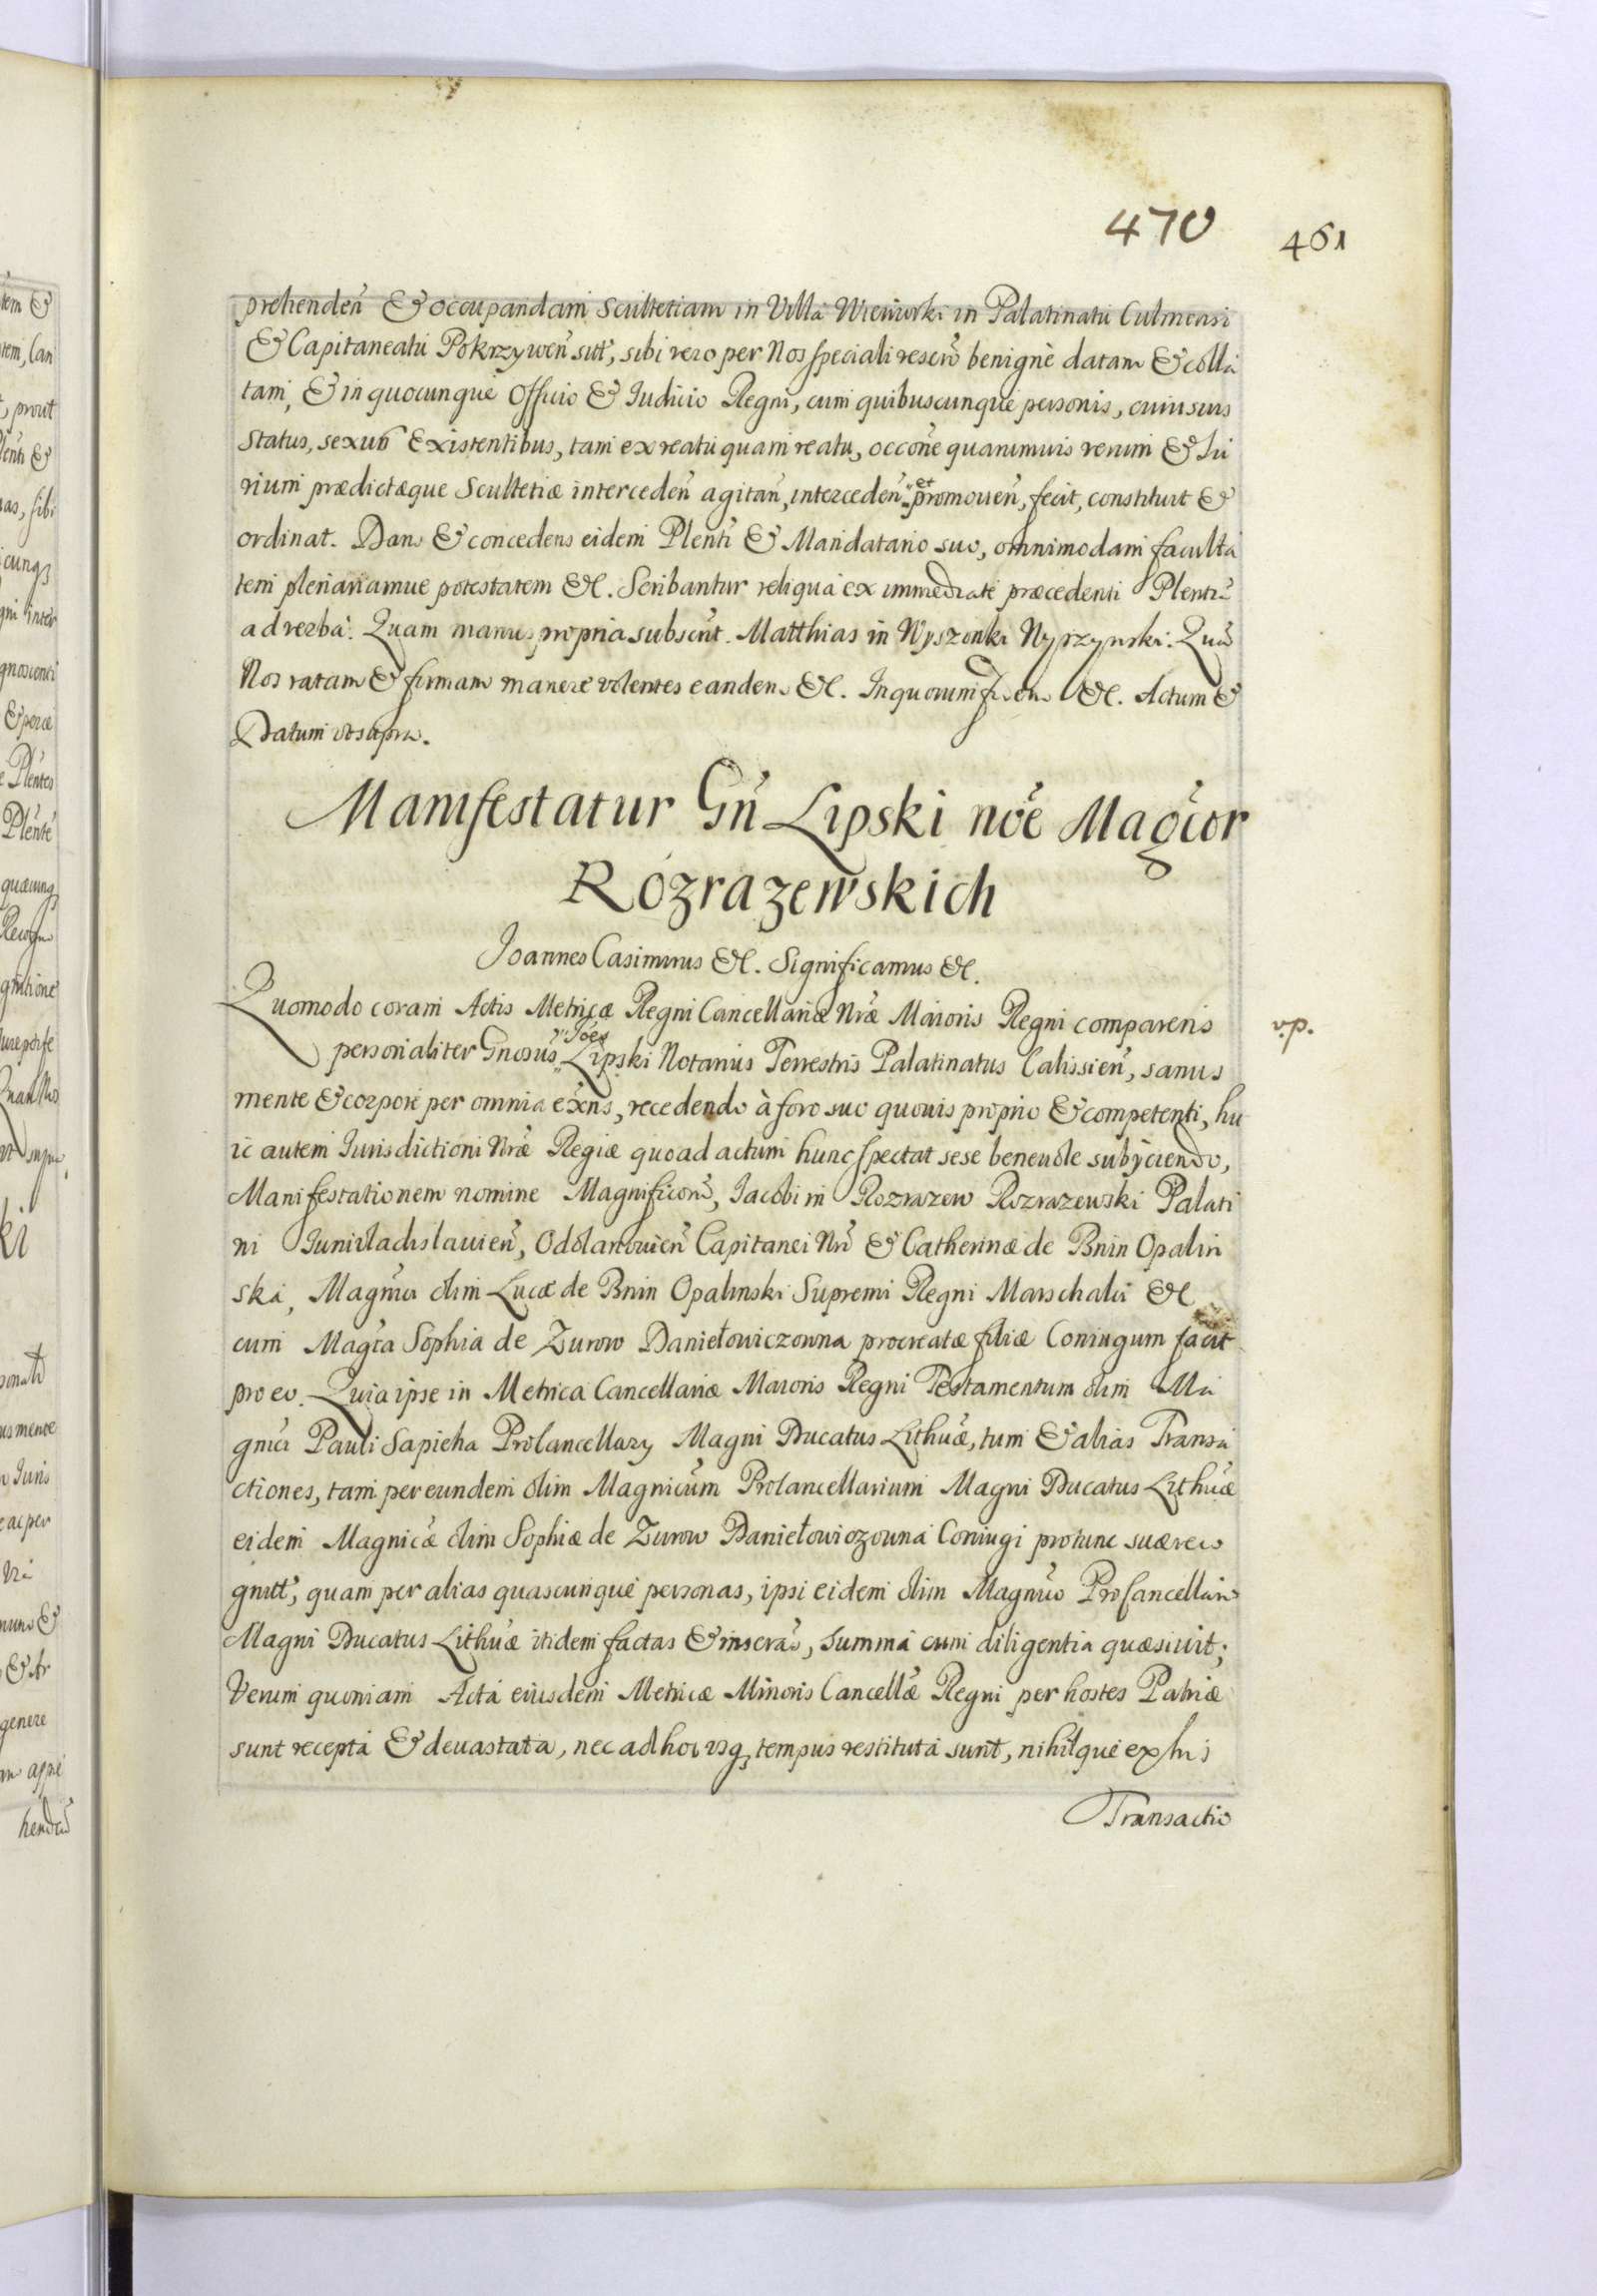 470
461
prehendeñ & occupandam Scultetiam in Villa in Palatinatu Culmensi
& Capitaneatu Pokrzyweñ sitt, sibi vero per Nos speciali rescrō benignè datam & colla
tam, & in quocunque Officio & Iudicio Regni, cum quibuscunque personis, cuiusuis
status, sexus Existentibus, tam ex reatu quam reatu, occōne quarumuis rerum & Iu
rium prædictæque Scultetiæ intercedeñ agitañ, intercedeñ et promoueñ, fecit, constituit &
ordinat. Dans & concedens eidem Plenti & Mandatario suo, omnimodam faculta
tem plenariamue potestatem &c. Scribantur reliqua ex immediatè præcedenti Plentiā
ad verba. Quam manus propria subscrit. Matthias in Wyszonki Quā
Nos ratam & firmam manere volentes eandem &c. In quorum fidem &c. Actum &
Datum vt supra.
Manifestatur Gñ Lipski nōe Magcor
Rózrazewskich
Joannes Casimirus &c. Significamus &c.
Quomodo coram Actis Metricæ Regni Cancellariæ Nræ Maioris Regni comparens
v.p.
personaliter Gnosus Ioēs Lipski Notarius Terrestris Palatinatus Calissieñ, sanus
mente & corpore per omnia exñs, recedendo à foro suo quouis proprio & competenti, hu
ic autem Iurisdictioni Nræ Regiæ quoad actum hunc spectat sese beneuole subÿciendo,
Manifestationem nomine Magnificorū, Iacobi in Rozrazew Rozrazewski Palati
ni Iuniuladislauieñ, Odolanouieñ Capitanei Nrī & Catherinæ de Bnin Opalin
ska, Magnici olim Lucæ de Bnin Opalinski Supremi Regni Marschalci &c
cum Magca Sophia de Zurow Daniełowiczowna procreatæ filiæ Coniugum facit
pro eo. Quia ipse in Metrica Cancellariæ Maioris Regni Testamentum olim Ma
gnici Pauli Sapieha Procancellary Magni Ducatus Lithuæ, tum & alias Transa
ctiones, tam per eundem olim Magnicum Procancellarium Magni Ducatus Lithuæ
eidem Magnicæ olim Sophiæ de Zurow Daniełowiczowna Coniugi protunc suæ reco
gnitt, quam per alias quascunque personas, ipsi eidem olim Magnico Procancellario
Magni Ducatus Lithuæ itidem factas & inscrās, summa cum diligentia quæsiuit;
Verum quoniam Acta eiusdem Metricæ Minoris Cancellæ Regni per hostes Patriæ
sunt recepta & deuastata, nec ad hoc vsq, tempus restituta sunt, nihilque ex his
Transactio